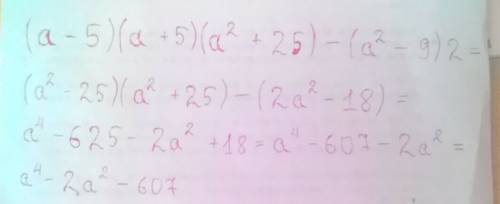 (a - 5)(a + 5)(a² + 25) - (a² - 9)2 =
(a² - 25)(a² + 25) - (2a² - 18) =
a⁴ - 625 - 2a² + 18 = a⁴ - 607 - 2a² =
a⁴ - 2a² - 607